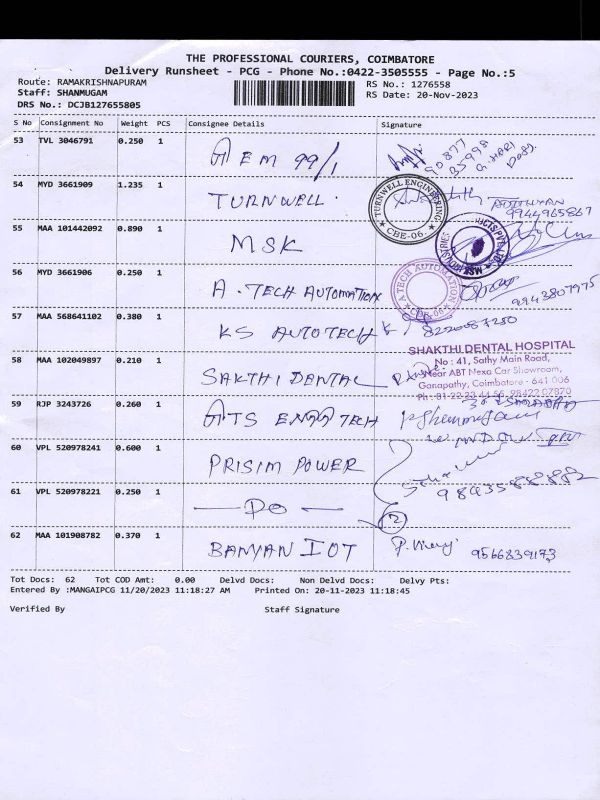 THE PROFESSIONAL COURIERS, COIMBATORE
Delivery Runsheet - PCG - Phone No.:0422-3505555 - Page No.:5
Route: RAMAKRISHNAPURAM
RS No.: 1276558
Staff: SHANMUGAM
RS Date: 20-Nov-2023
DRS No.: DCJB127655805
S No Consignment No Weight PCS Consignee Details Signature
53 TVL 3046791 0.250 1
EM 99/1
90877
35998
G. HARI
54 MYD 3661909 1.235 1
TURNWELL
TURNWELL ENGINEERING
CBE-06.
9944965867
55 MAA 101442092 0.890 1
MSK
56 MYD 3661906 0.250 1
A. TECH AUTOMATION
A TECH AUTOMATION
CBE-06
9943807975
57 MAA 568641102 0.380 1
KS AUTOTECH
8220087280
58 MAA 102049897 0.210 1
SAKTHI DENTAL
SHAKTHI DENTAL HOSPITAL
No : 41, Sathy Main Road,
Near ABT Nexa Car Showroom,
Ganapathy, Coimbatore - 641 006
59 RJP 3243726 0.260 1
TECH
60 VPL 520978241 0.600 1
PRISIM POWER
61 VPL 520978221 0.250 1
— DO —
2
62 MAA 101908782 0.370 1
BANYAN IOT
9566839193
Tot Docs: 62 Tot COD Amt: 0.00 Delvd Docs: Non Delvd Docs: Delvy Pts:
Entered By :MANGAIPCG 11/20/2023 11:18:27 AM Printed On: 20-11-2023 11:18:45
Verified By Staff Signature